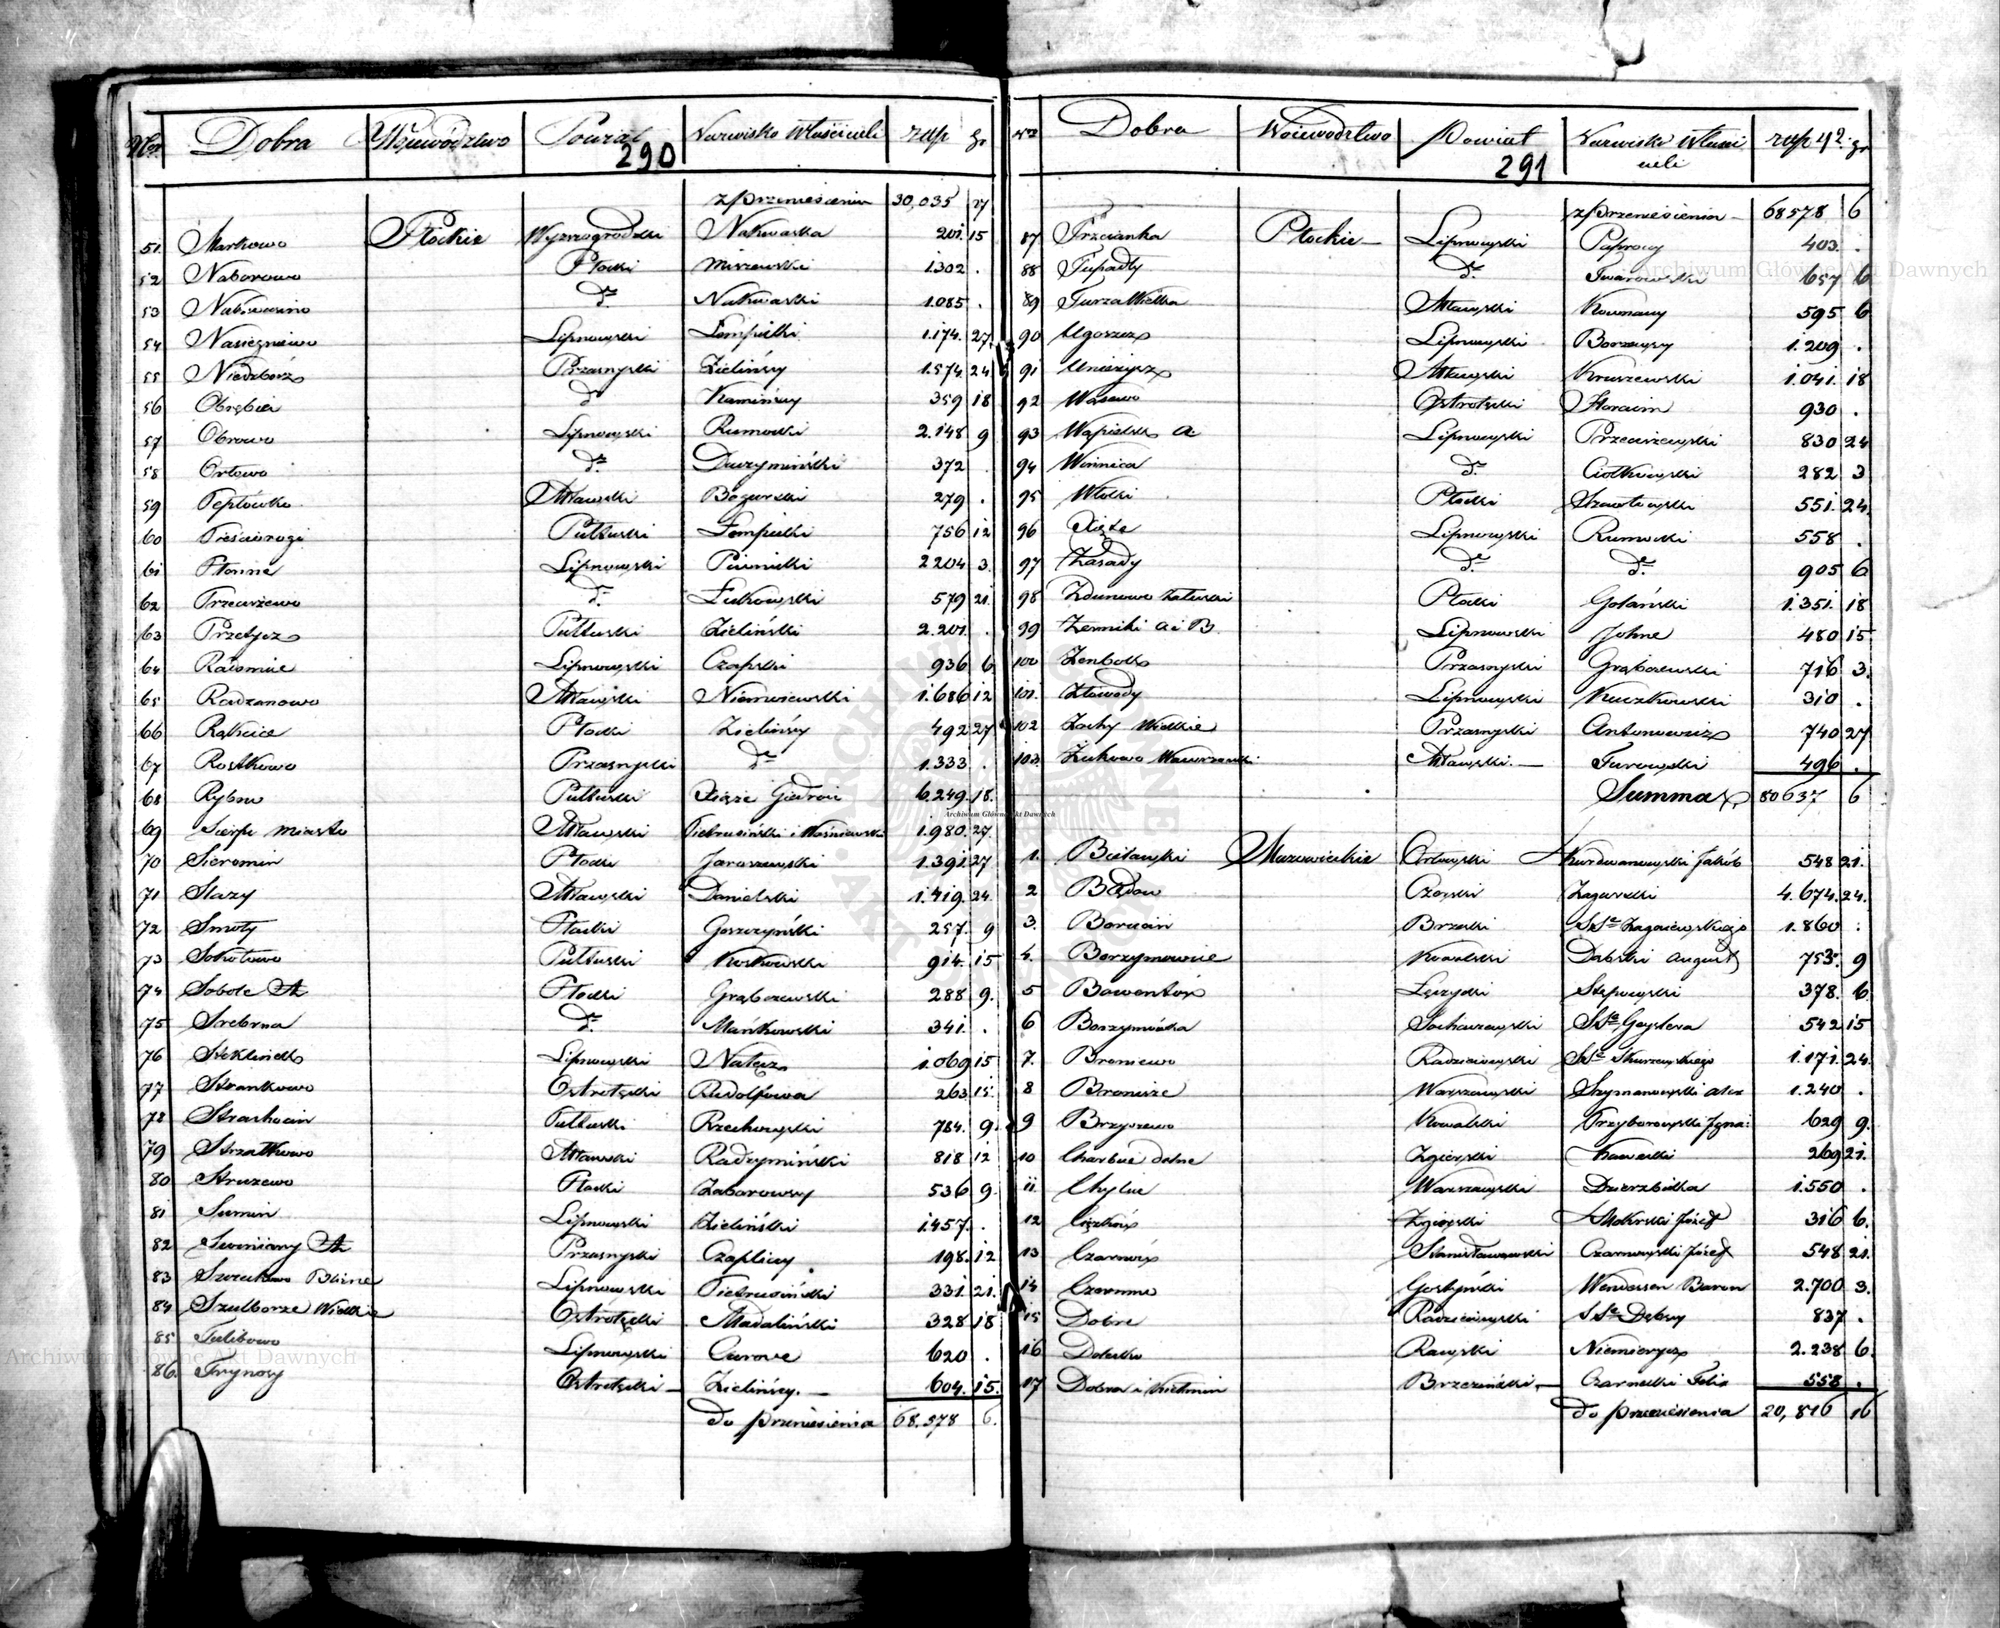 Nro Dobra Województwo Powiat Nazwisko Właścicieli złp gr
290
z przeniesienia 30,035 27
51. Markowo Płockie Wyszogrodzki Nakwaska 201. 15
52 Naborowo Płocki Miszewski 1302 .
53 Nakwasino do Nakwaski 1.085 .
54 Nasiegniewo Lipnowski Lempicki 1.174. 27.
55 Niedzbórz Przasnyski Zielińscy 1.574. 24
56 Obrębiec do Kamińscy 359 18
57 Obrowo Lipnowski Rumocki 2.148 9
58 Orłowo do Duczymiński 372 .
59 Pepłówko Mławski Bogucki 279 .
60 Pieścirogi Pułtuski Lempicki 756 12
61 Płonne Lipnowski Piwnicki 2204 3.
62 Przeciszewo do Łukowski 579 21.
63 Przetycz Pułtuski Zieliński 2.201. .
64 Radomice Lipnowski Czapski 936 6
65 Radzanowo Mławski Niemojewski 1.686 12
66 Rąkcice Płocki Zielińscy 492 27
67 Rostkowo Przasnyski do 1.333 .
68 Rybno Pułtuski Xiąże Giedroić 6.249. 18.
69 Sierpc Miasto Mławski Pietrusiński i Woźniewski 1.980. 27.
70 Sieromin Płocki Jaroszewski 1.391. 27
71 Slazy Mławski Danielski 1.419. 24
72 Smoły Płocki Goszczyński 257. 9
73 Sokołowo Pułtuski Koskowski 914. 15
74 Sobole A Płocki Grąbczewski 288 9.
75 Srebrna do Mańkowski 341. .
76 Steklinek Lipnowski Nałęcz 1.069 15
77 Strankowo Ostrołęcki Rudolfowa 263 15.
78 Strachocin Pułtuski Rzechowski 784. 9.
79 Strzałkowo Mławski Radzymiński 818 12
80 Struzewo Płocki Zaborowscy 536 9.
81 Sumin Lipnowski Zieliński 1457. .
82 Swiniary A Przasnyski Czaplicy 198. 12
83 Szczutowo Blizne Lipnowski Pietrusiński 331. 21.
84 Szulborze Wielkie Ostrołęcki Madaliński 328 18
85 Tulibowo Lipnowski Curove 620 .
86. Trynosy Ostrołęcki Zielińscy. 604. 15.
do przeniesienia 68.578 6.
Nr Dobra Województwo Powiat Nazwisko Właścicieli złp gr
291
z przeniesienia 68578 6
87 Trzcianka Płockie Lipnowski Paprocy 403. .
88 Tupadły do Iwanowski 657 6
89 Turza Wielka Mławski Kosmacy 595 6
90 Ugoszcz Lipnowski Borzewscy 1.209 .
91 Unierzysz Mławski Kruszewski 1.041. 18
92 Wąsewo Ostrołęcki Floraim 930 .
93 Wąpielsk A. Lipnowski Przeciszewski 830 24
94 Winnica do Ciołkowski 282 3
95 Włóki Płocki 551. 24.
96 Xięte Lipnowski Rumocki 558 .
97 Zasady do do 905 6
98 Zdunowo Załuski Płocki Golański 1.351. 18
99 Zerniki A i B Lipnowski Johne 480 15
100 Zembok Przasnyski Grąbczewski 716 3.
101. Złowody Lipnowski Kuczkowski 310 .
102 Żochy Wielkie Przasnyski Antoniewicz 740 27
103. Żukowo Wawrzonki Mławski. Turowski 496 .
Summa 80637 6
1. Białawski Mazowieckie Orłowski Kurdwanowski Jakób 548 21.
2 Błędow Czerski Zagórski 4.674. 24.
3. Borucin Brzeski SSre Zagaiewskiego 1.860 .
4. Borzymowice Kowalski Dąbski August 753. 9
5 Bowentów Łęczycki Stępowski 378. 6.
6 Borzymówka Sochaczewski SSre Geyslera 542 15
7. Broniewo Radziejowski SSre Skurzewskiego 1.171. 24.
8 Bronisze Warszawski Szymanowski Alex 1.240 .
9 Brzyszewo Kowalski Przyborowski Igna: 629 9.
10 Charbice dolne Zgierski Kawecki 269 21.
11 Chylice Warszawski Dzierzbicka 1.550 .
12 Ciężków Zgierski Mokrski Józef 316 6.
13 Czarnów Stanisławowski Czarnowski Józef 548 21.
14 Czermno Gostyński Wendessen Baron 2.700 3.
15 Dobre Radziejowski SSre Dębscy 837 .
16 Dołecko Rawski Niemierycz 2.238 6.
17 Dobra i Kiełmin Brzeziński Czarnecki Felix 558 .
do przeniesienia 20,816 16
Archiwum Główne Akt Dawnych
Archiwum Główne Akt Dawnych
Archiwum Główne Akt Dawnych